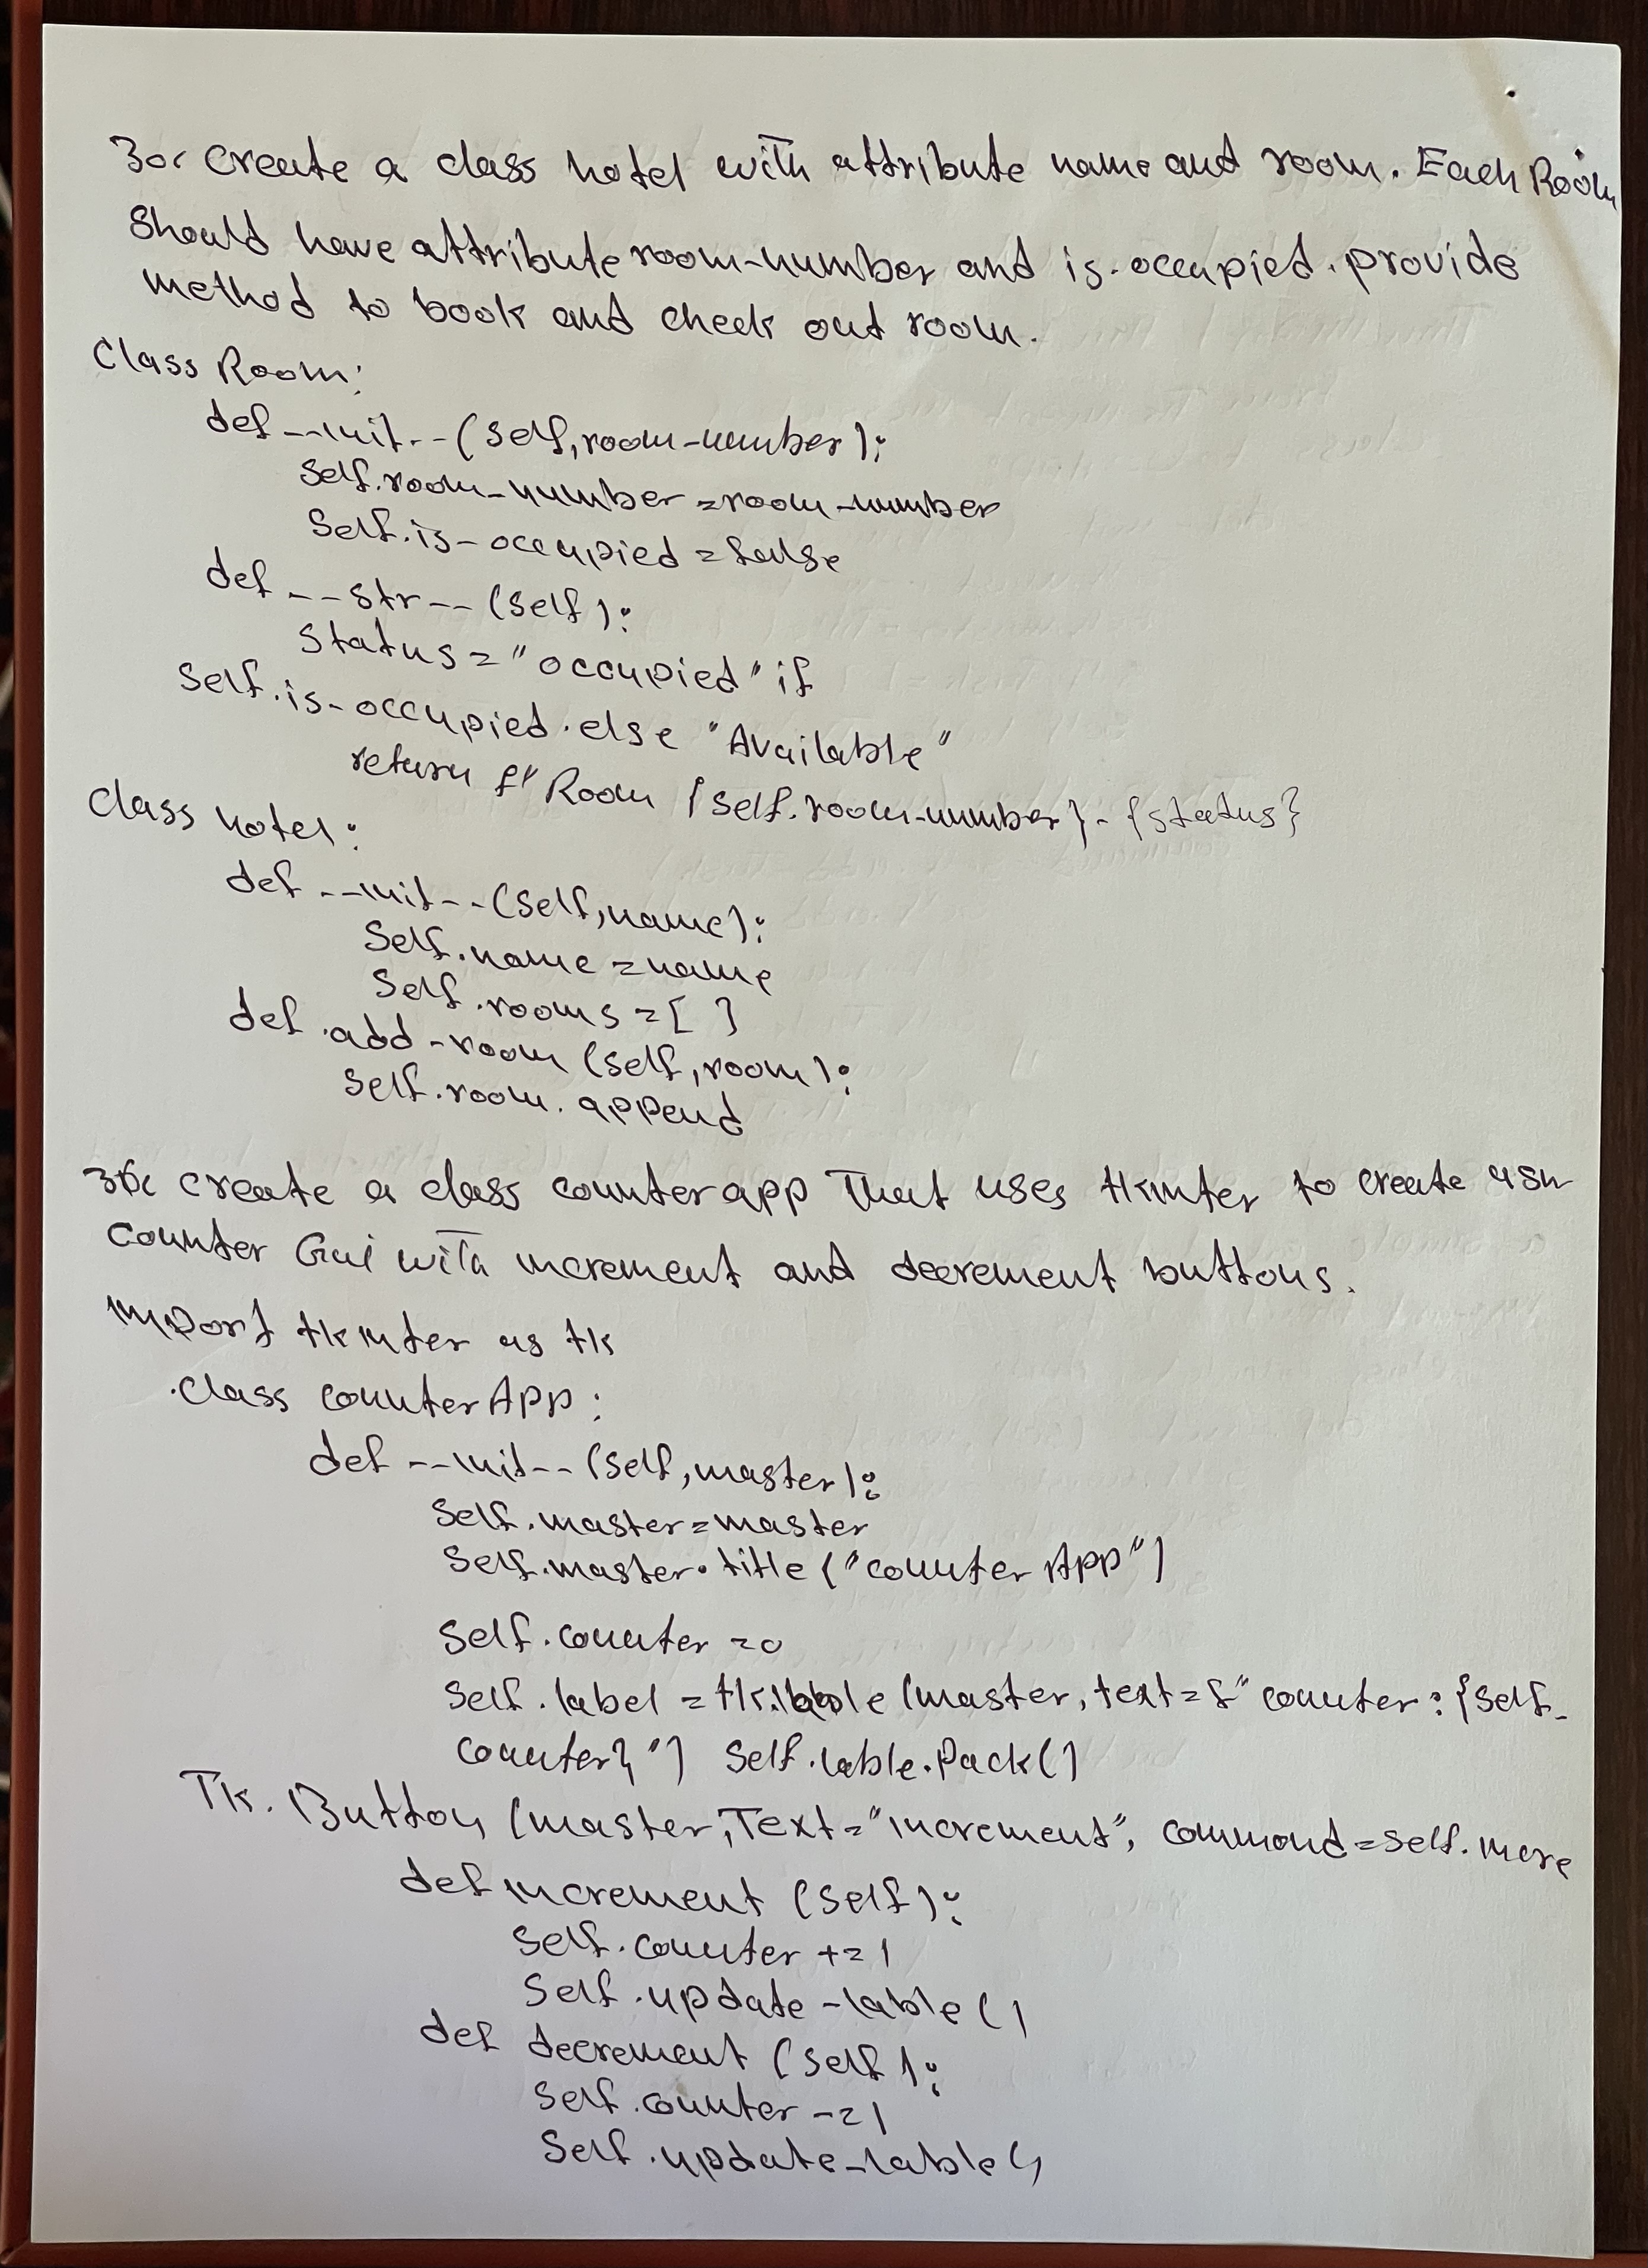 30. Create a class hotel with attribute name and room. Each Room
Should have attribute room-number and is-occupied. provide
method to book and check out room.
Class Room:
def --init-- (self, room-number):
Self.room-number = room-number
Self.is-occupied = false
def --str-- (self):
Status = "occupied" if
Self.is-occupied. else "Available"
return f" Room {self.room-number} - {status}
Class hotel:
def --init-- (self, name):
Self.name = name
Self.rooms = [ ]
def add-room (self, room):
Self.room. append
create a class counter app That uses tkinter to create
Counter Gui with increment and decrement buttons.
import tkinter as tk
class counterApp:
def --init-- (self, master):
Self.master = master
Self.master.title ("counter App")
Self.counter = 0
Self.label = tk. (master, text = f" counter : {self.
counter} ") Self.lable.Pack()
Tk. Button (master, Text = "increment", command = self. incre
def increment (self):
Self.counter += 1
Self.update-lable ()
def decrement (self):
Self.counter -= 1
Self.update-lable ()